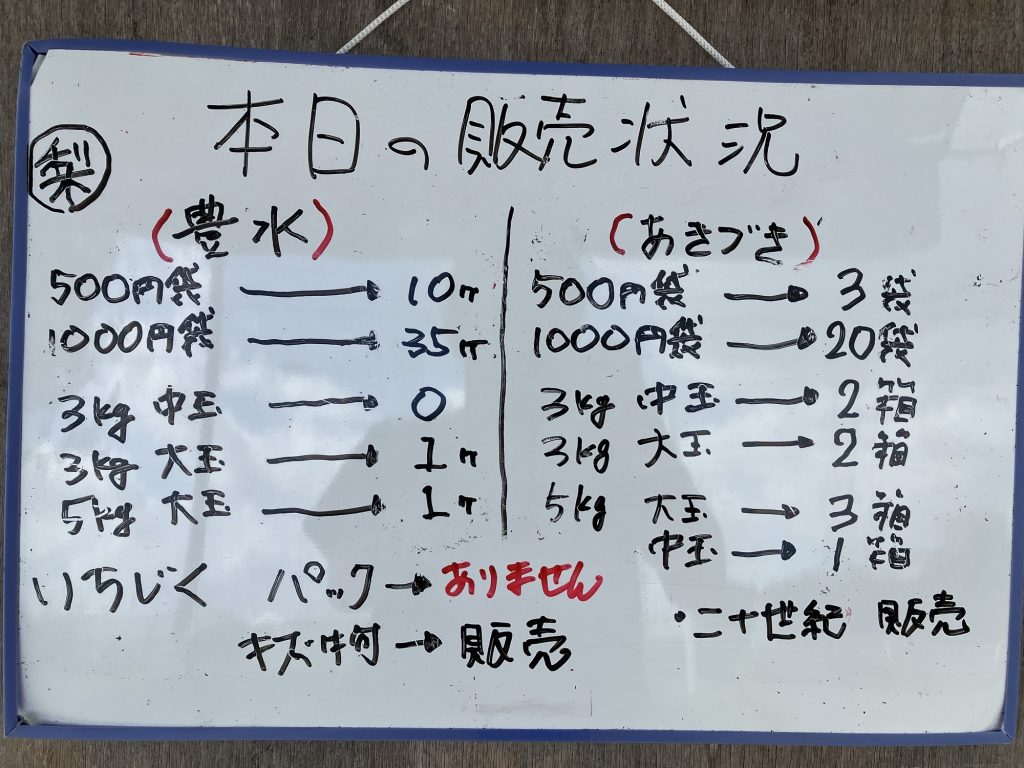 本日の販売状況
梨
(豊水)
500円袋 → 10ヶ
1000円袋 → 35ヶ
3kg 中玉 → 0
3kg 大玉 → 1ヶ
5kg 大玉 → 1ヶ
(あきづき)
500円袋 → 3袋
1000円袋 → 20袋
3kg 中玉 → 2箱
3kg 大玉 → 2箱
5kg 大玉 → 3箱
中玉 → 1箱
いちじく パック → ありません
キズ付 → 販売
・二十世紀 販売